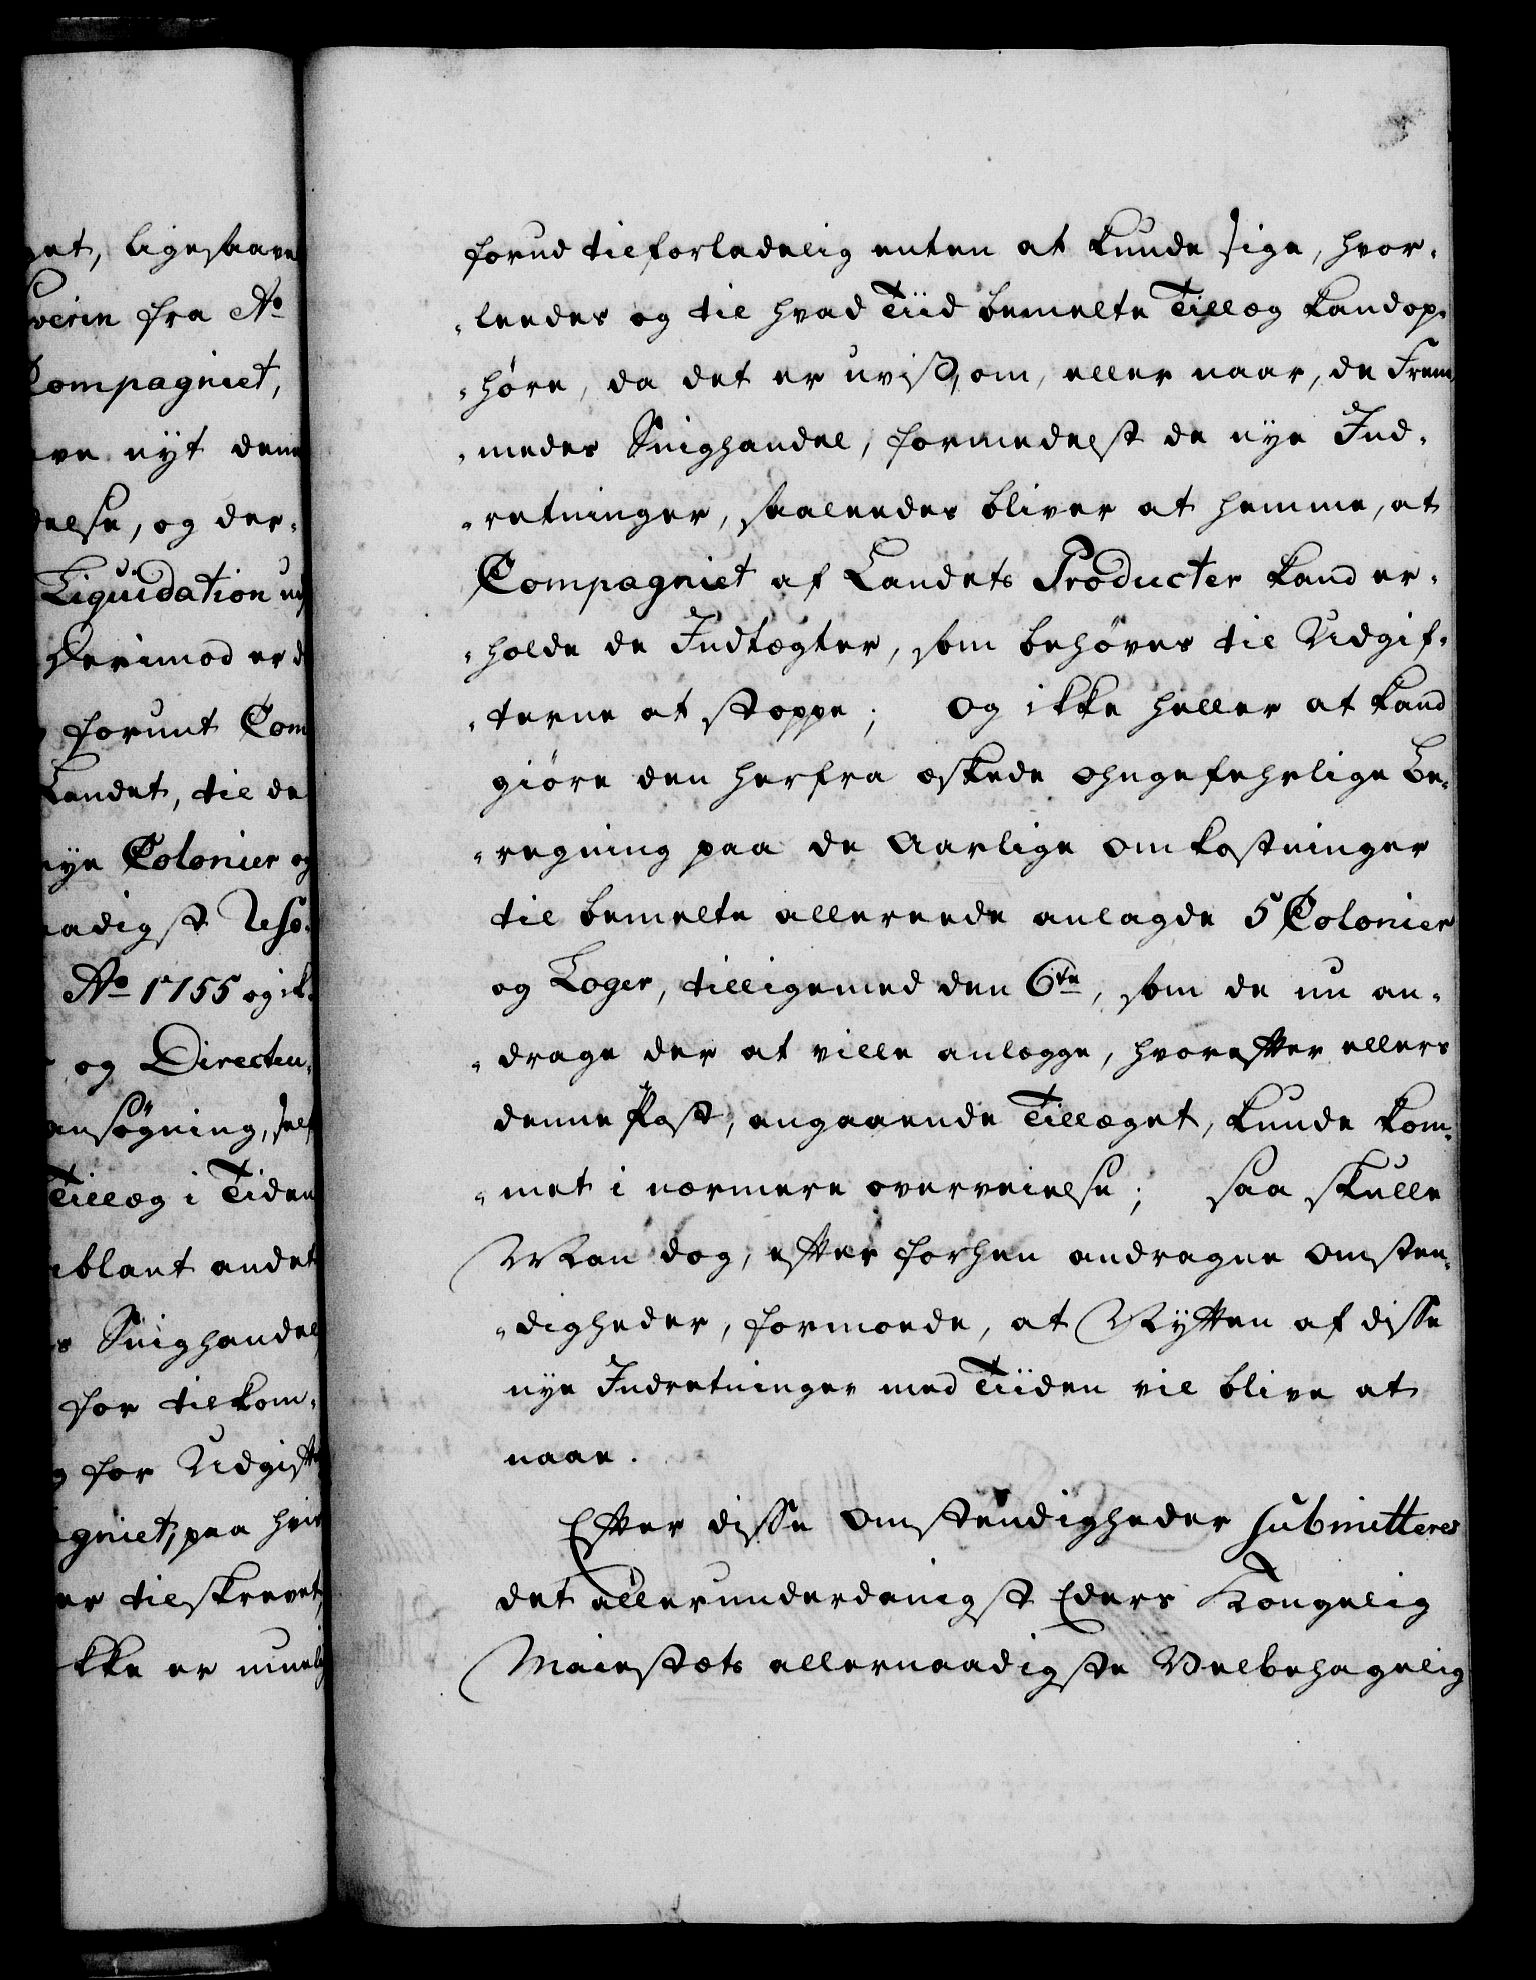 et, ligesaave
verin fra Ao
Compagniet,
ve nyt denn
delse, og der-
Liquidation
Derimod er d
forunt Com
Landet, til de
nye Colonier og
aadigst Reso-
Ao 1755 og ik-
og Directeu-
ansøgning, self
Tillæg i Tiden
iblant andet
Snighandel
for tilkom-
for Udgifte
gniet, paa hvis
er tilskrevet,
kke er muelig
forud tilforladelig enten at kunde sige, hvor-
-ledes og til hvad Tiid bemelte Tillæg kand op-
-høre, da det er uvist, om, eller naar, de Frem
-medes Snighandel, formedelst de nye Ind-
-retninger, saaledes bliver at hemme, at
Compagniet af Landets Producter kand er-
-holde de Indtægter, som behøves til Udgif-
-terne at stoppe; og ikke heller at kand
giøre den herfra æskede ohngefehrlige Be-
-regning paa de Aarlige omkostninger
til bemelte allereede anlagde 5 Colonier
og Loger, tilligemed den 6te, som de nu an-
-drage der at ville anlægge, hvorefter ellers
denne Post, angaaende Tillæget, kunde kom-
-met i nærmere overveielse; saa skulle
Man dog, efter forhen andragne omsten-
-digheder, formode, at Nytten af disse
nye Indretninger med Tiiden vil blive at
naae.
Efter disse omstendigheder submitteres
det allerunderdanigst Eders Kongelig
Maiestæts allernaadigste Velbehagelig